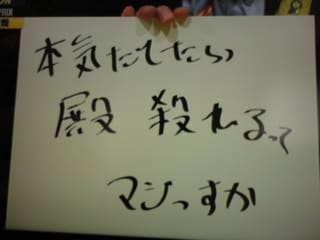 本気だてたら
殿 殺れるって
マジっすか